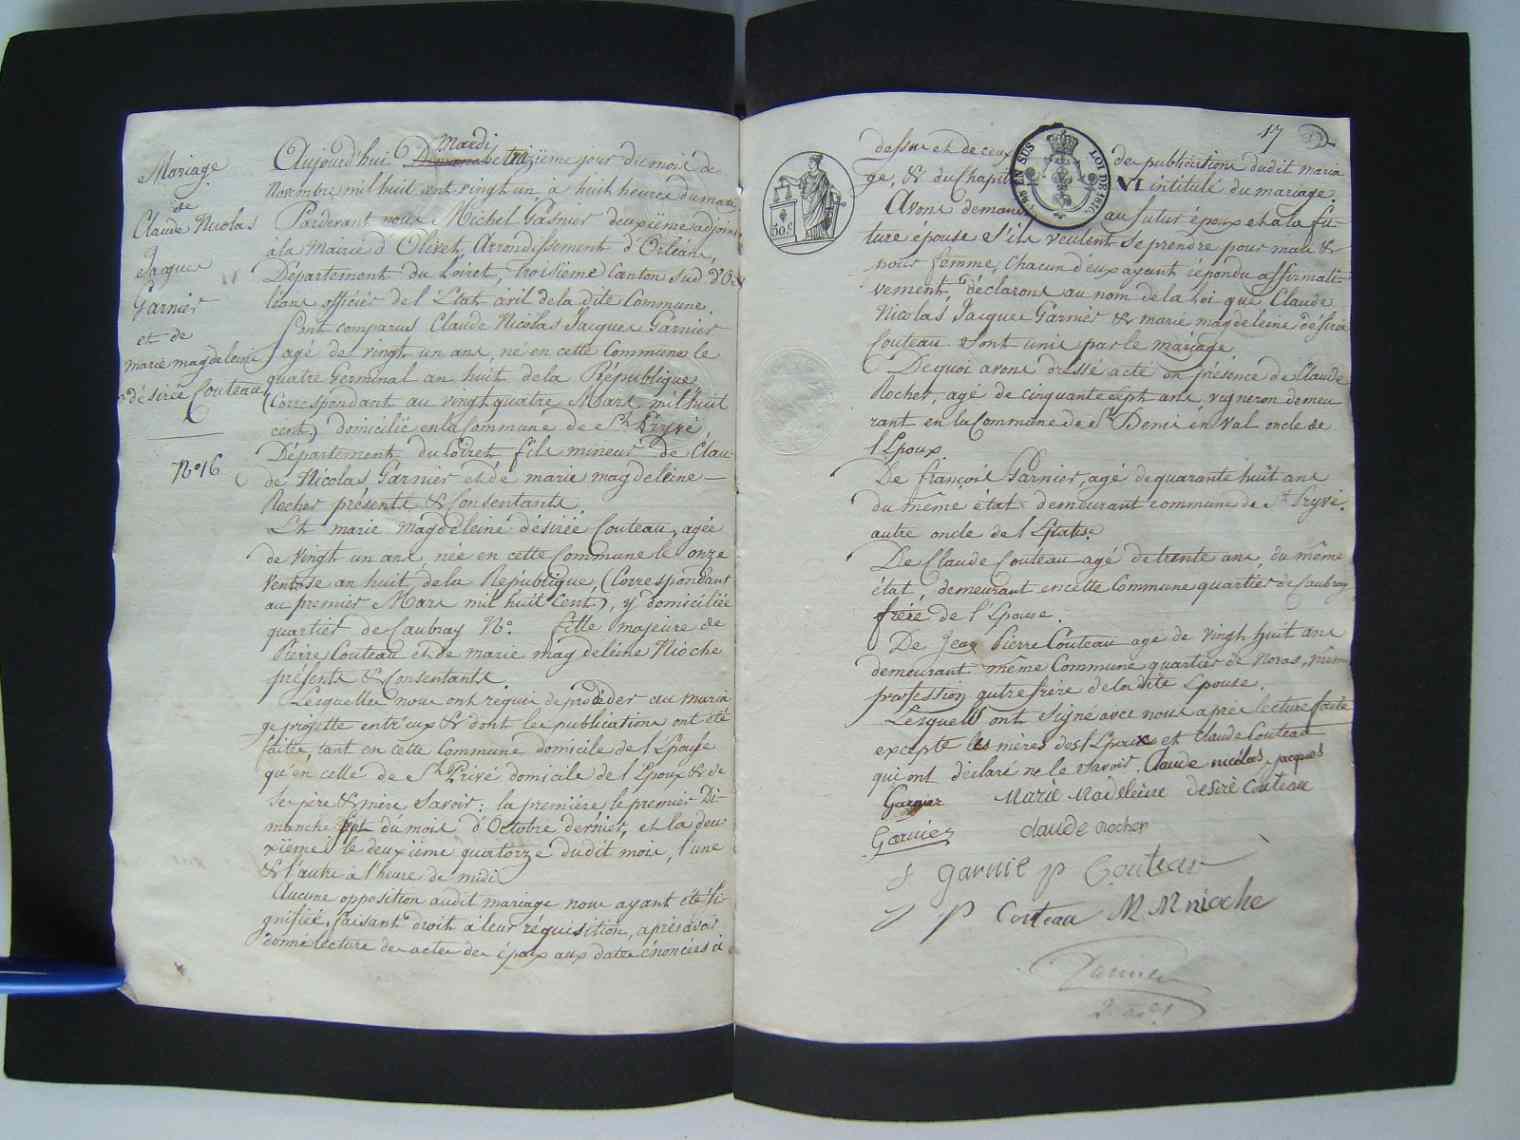 Mariage
de
Claude Nicolas
Jacques
Garnier
et de
marie magdeleine
désirée Couteau
N.° 16
Aujourd'hui Mardi treizième jour du mois de
Novembre mil huit cent vingt un à huit heures du matin
Pardevant nous Michel Gasnier deuxième adjoint
à la Mairie d'Olivet, Arrondissement d'Orléans,
Département du Loiret, troisième Canton sud d'Or
léans officier de l'État civil de la dite Commune.
Sont comparus Claude Nicolas Jacques Garnier
agé de vingt un ans, né en cette Commune le
quatre Germinal an huit de la République
(Correspondant au vingt quatre Mars mil huit
cent,) domicilié en la Commune de St. Pryvé,
Département du Loiret, fils mineur de Clau-
de Nicolas Garnier et de marie magdeleine
Rocher présents & Consentants.
Et marie magdeleine désirée Couteau, agée
de vingt un ans, née en cette Commune le onze
Ventose an huit de la République, (Correspondant
au premier Mars mil huit Cent), y domiciliée
quartier de Caubray N.° fille majeure de
Pierre Couteau et de marie magdeleine Nioche
présents & Consentants.
Lesquels nous ont requis de procéder au maria
ge projetté entr'eux & dont les publications ont été
faites, tant en cette Commune domicile de l'Epouse
qu'en celle de St. Privé domicile de l'Epoux & de
ses père & mère Savoir: la première le premier Di-
manche sept du mois d'Octobre dernier, et la deu-
xième le deuxième quatorze dudit mois, l'une
& l'autre à l'heure de midi
Aucune opposition audit mariage nous ayant été si
gnifiée, faisant droit à leur réquisition, après avoir
donné lecture des actes des époux aux dates énoncées ci
17
dessus et de ceux de publications dudit maria
ge, & du Chapitre VI intitulé du mariage.
Avons demandé au futur époux et à la fu-
ture epouse s'ils veulent se prendre pour mari &
pour femme, Chacun d'eux ayant répondu affirmati-
vement, déclarons au nom de la Loi que Claude
Nicolas Jacques Garnier & marie magdeleine désirée
Couteau sont unis par le mariage.
De quoi avons dressé acte en présence de Claude
Rocher, agé de cinquante sept ans, vigneron demeu
rant en la Commune de St. Denis en Val oncle de
l'Epoux.
De françois Garnier, agé de quarante huit ans
du même état demeurant commune de St. Pryvé.
autre oncle de l'Epoux.
De Claude Couteau agé de trente ans, du même
état, demeurant en cette Commune quartier de Caubray
frère de l'Epouse.
De Jean Pierre Couteau agé de vingt huit ans
demeurant même Commune quartier de Noras, même
profession autre frère de la dite Epouse.
Lesquels ont signé avec nous après lecture faite
excepté les mères des Epoux et Claude Couteau
qui ont déclaré ne le savoir. Claude nicolas jacques
Garnier Marie Madeleine desiré couteau
Garnier claude rocher
f garnie p Couteau
J P Couteau M M nioche
Gasnier
2e adjt
50 C
EN SUS LOI DE 1816